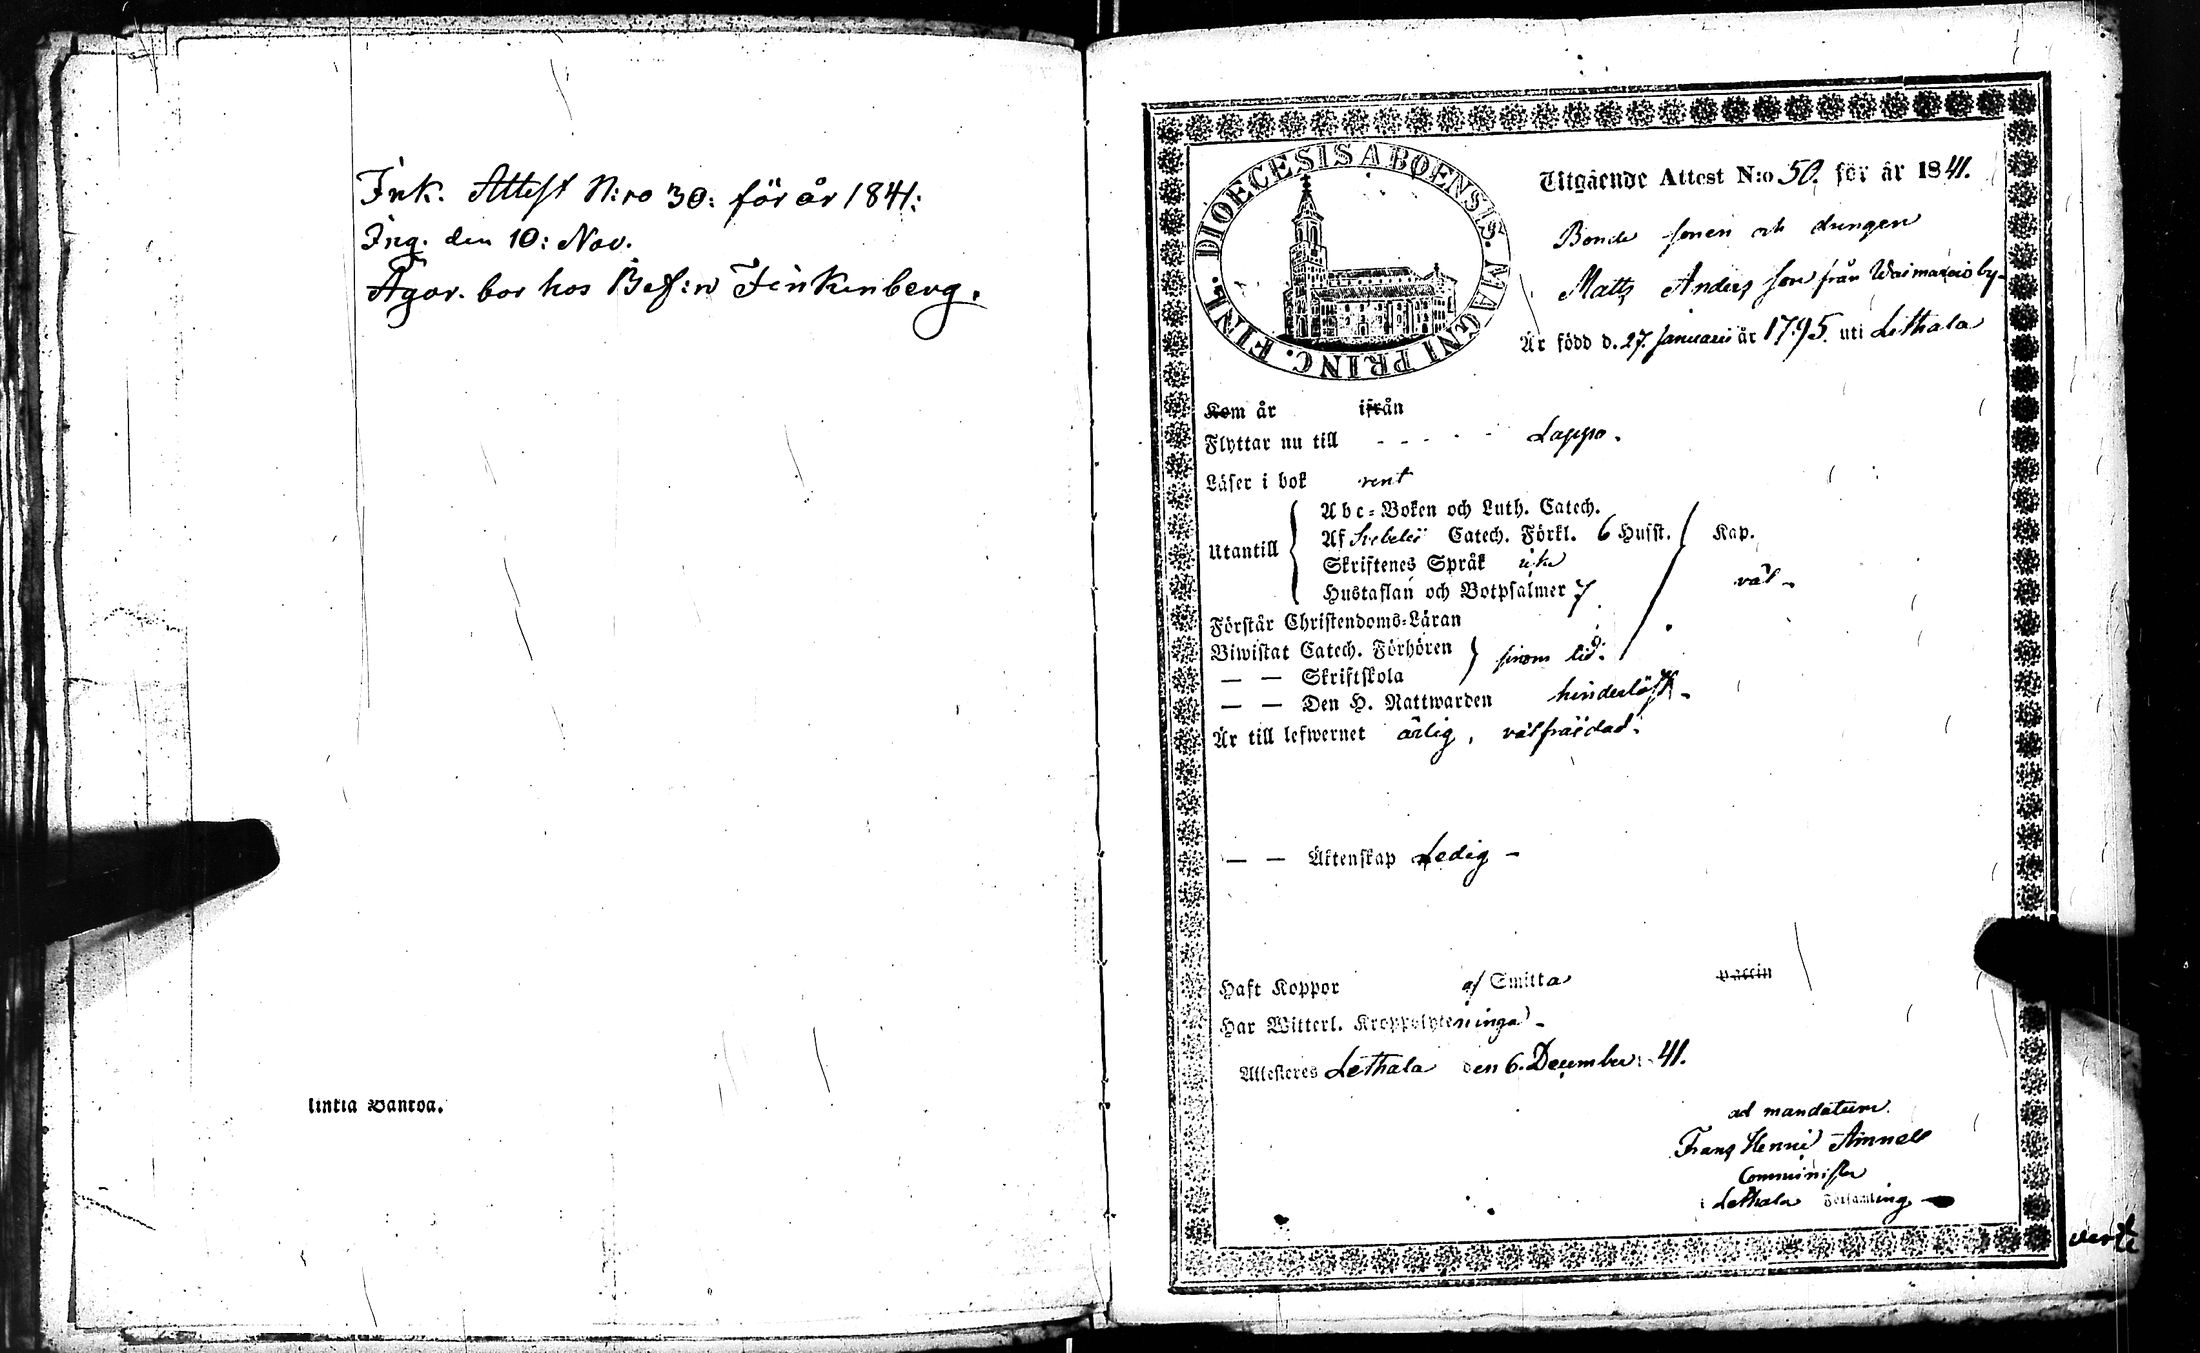 Ink. Attest N:ro 30: för år 1841:
Ing. den 10: Nov.
Ägar. bor hos Bef:n Finkenberg.
DIOECESIS ABOENSIS. MAGNI PRINC. FINL.
Utgående Attest N:o 50. för år 1841.
Bonde sonen och drengen
Matts Anders son från Waimaxois by
Är född d. 27. Januari år 1795. uti Lethala
Kom år ifrån
Flyttar nu till - - - - - Lappo.
Läser i bok rent
Utantill
Abc-Boken och Luth. Catech.
Af Svebelii Catech. Förkl. 6 Hufst. Kap.
Skriftenes Språk icke
Hustaflan och Botpsalmer 7 väl -
Förstår Christendoms-Läran
Biwistat Catech. Förhören
— — Skriftskola sinom tid.
— — Den H. Nattwarden hinderlöst -
Är till lefwernet ärlig, välfräjdad.
— — Äktenskap Ledig -
Haft Koppor af Smitta Vaccin
Har Witterl. Kroppslyten inga -
Attesteres Lethala den 6. December 41.
ad mandatum
Frans Henric Aimnell
Comminister
i Lethala Församling
verte